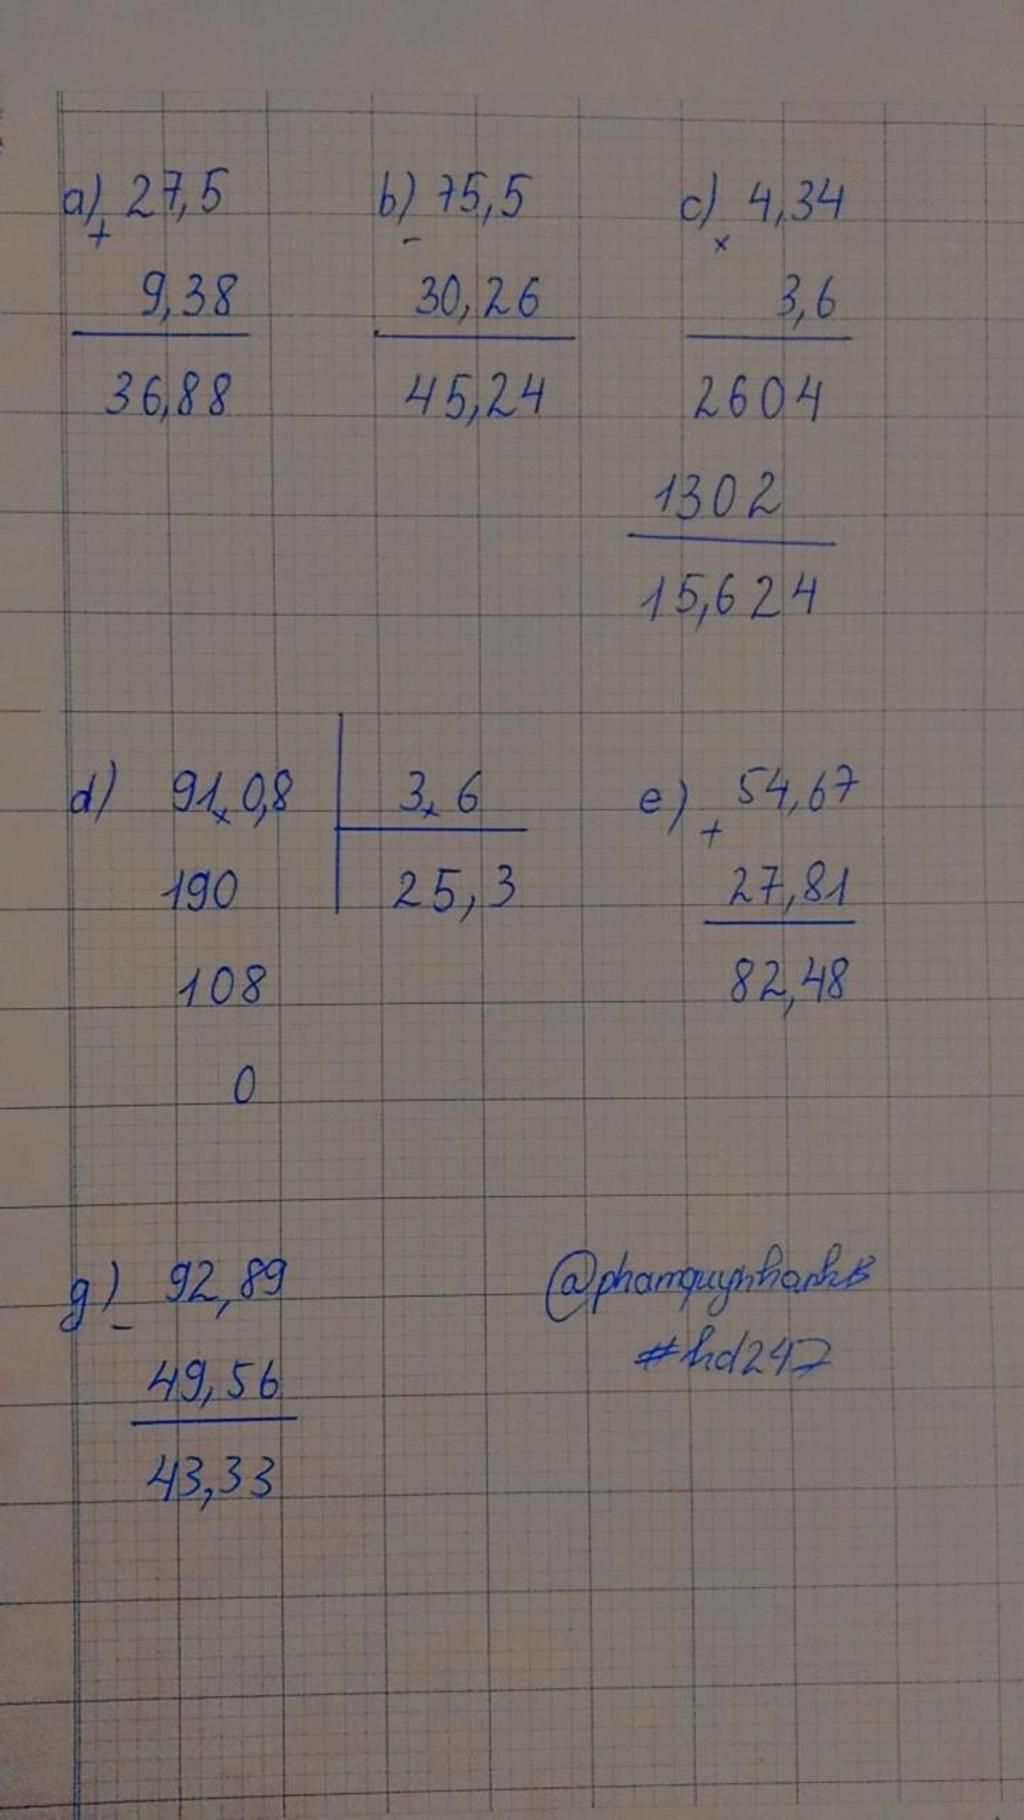 a) 27,5 b) 75,5 c) 4,34
+ - ×
9,38 30,26 3,6
36,88 45,24 2604
1302
15,624
d) 91,0,8 3,6 e) 54,67
+
190 25,3 27,81
108 82,48
0
g) 92,89 @phamquynhanhB
- #hd247
49,56
43,33